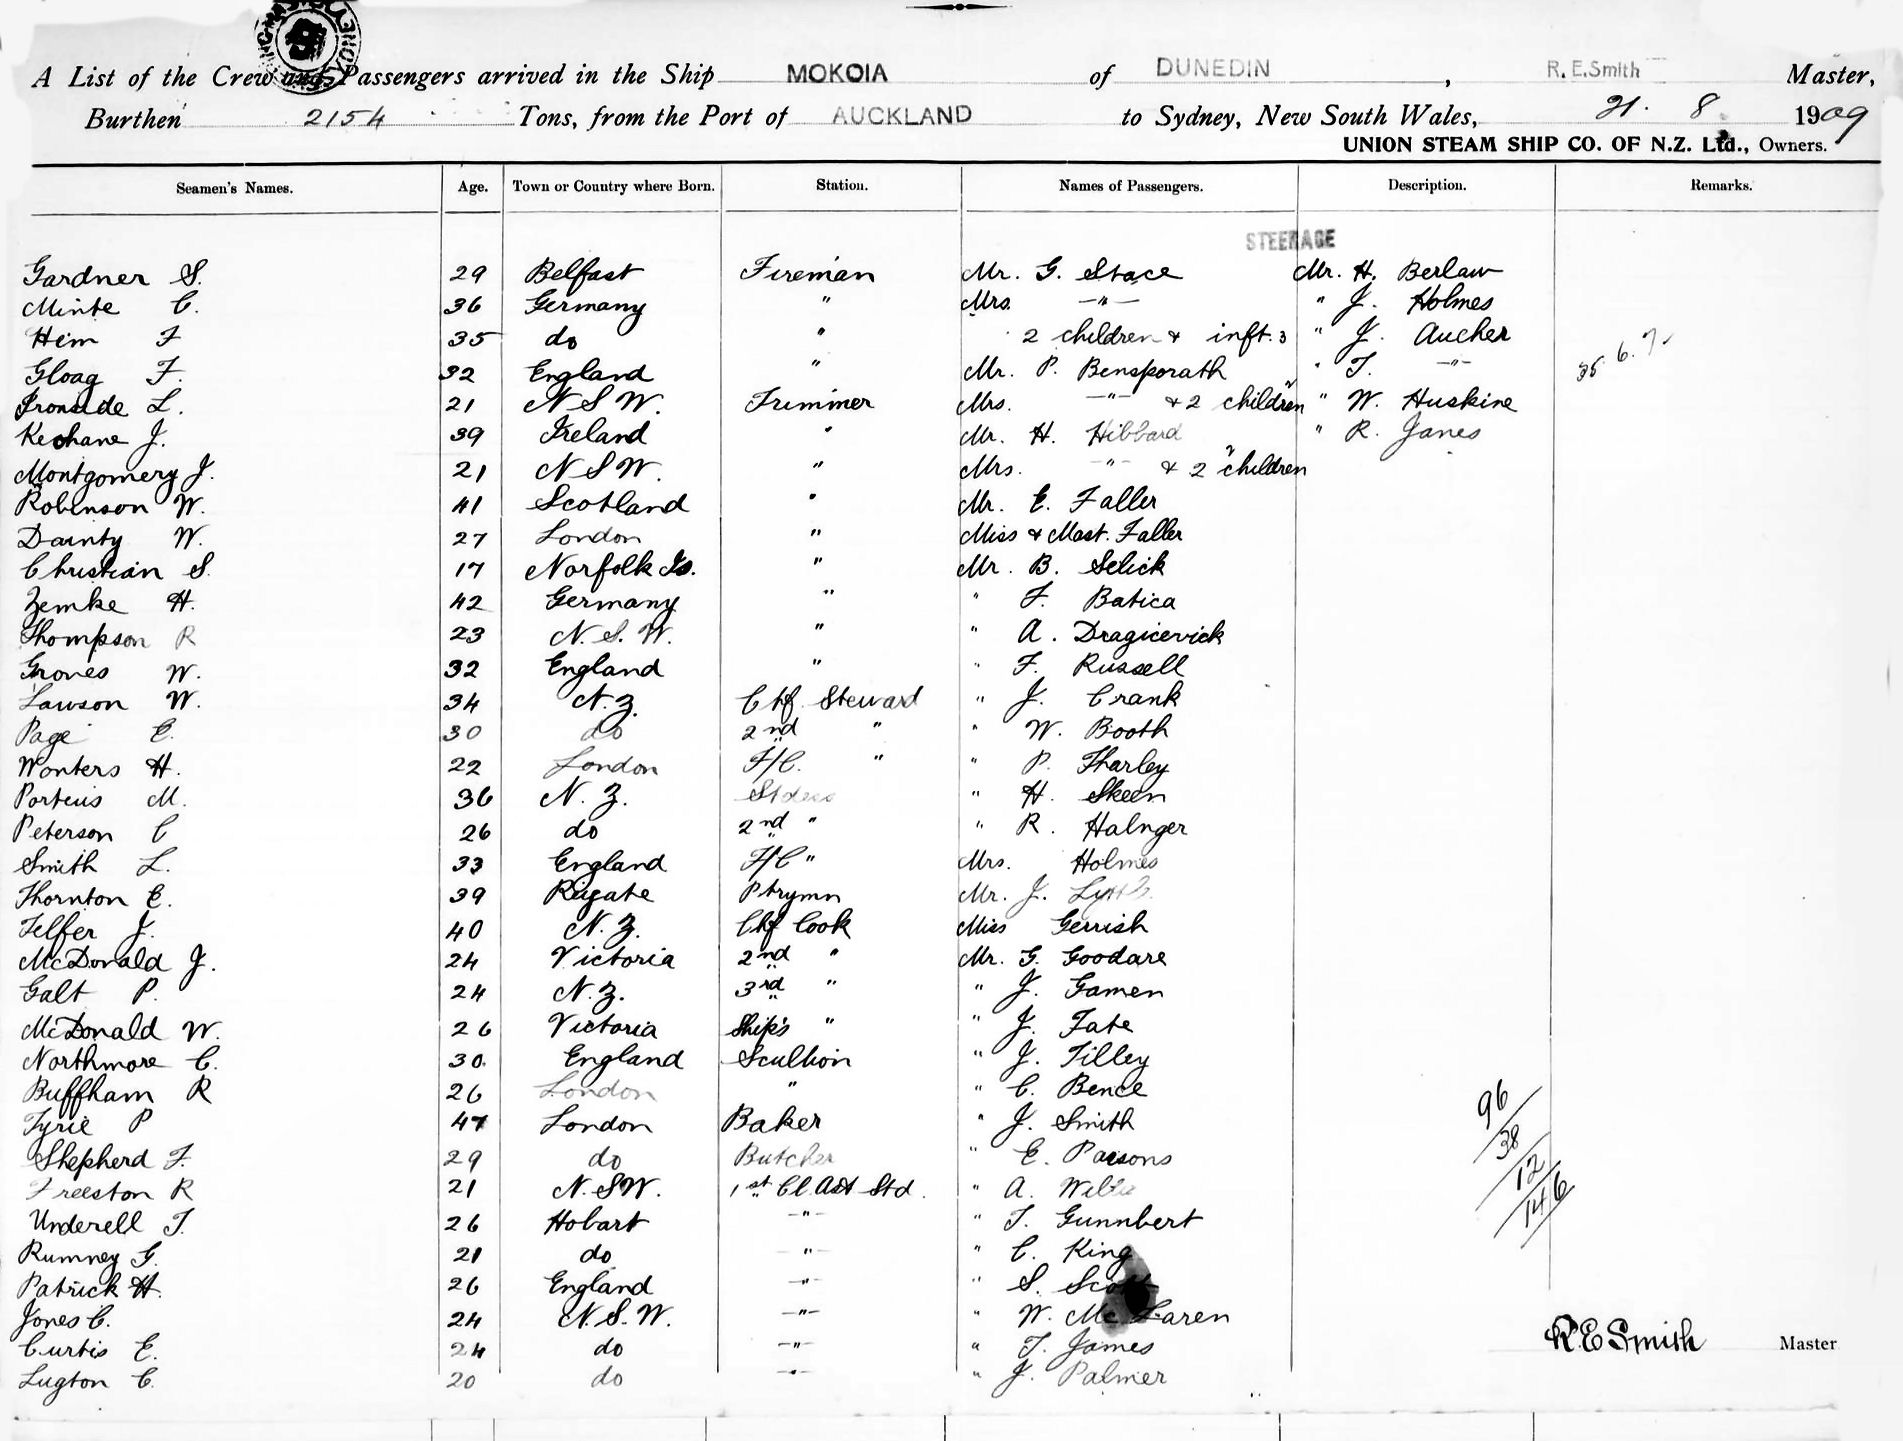 A List of the Crew and Passengers arrived in the Ship MOKOIA of DUNEDIN, R. E. Smith Master,
Burthen 2154 Tons, from the Port of AUCKLAND to Sydney, New South Wales, 21. 8 1909
UNION STEAM SHIP CO. OF N.Z. Ltd., Owners.
Seamen's Names. Age. Town or Country where Born. Station. Names of Passengers. Description. Remarks.
STEERAGE
Gardner S. 29 Belfast Fireman Mr. G. Stace Mr. H. Berlaw
Minte C. 36 Germany " Mrs. —"— " J. Holmes
Heim F 35 do " 2 children & inft. 3 " J. Aucher
Gloag F. 32 England " Mr. P. Bensporath " T. —"—
Ironside L. 21 N S W. Trimmer Mrs. —"— & 2 children " W. Huskine
Keohane J. 39 Ireland " Mr. H. Hibbard " R. Janes
Montgomery J. 21 N S W. " Mrs. —"— & 2 children
Robinson W. 41 Scotland " Mr. E. Faller
Dainty W. 27 London " Miss & Mast. Faller
Christian S. 17 Norfolk Is. " Mr. B. Selick
Zemke H. 42 Germany " " F. Batica
Thompson R 23 N. S. W. " " A. Dragicevick
Groves W. 32 England " " F. Russell
Lawson W. 34 N. Z. Chf Steward " J. Crank
Page E. 30 do 2nd " " W. Booth
Wonters H. 22 London F/C. " " P. Tharley
Porteus M. 36 N. Z. Stdess " H. Skeen
Peterson C 26 do 2nd " " R. Halnger
Smith L. 33 England F/C " Mrs. Holmes
Thornton E. 39 Reigate Ptrymn Mr. J.
Telfer J. 40 N. Z. Chf Cook Miss Gerrish
McDonald J. 24 Victoria 2nd " Mr. G. Goodare
Galt P. 24 N. Z. 3rd " " J. Gamen
McDonald W. 26 Victoria Ship's " " J. Tate
Northmore C. 30. England Scullion " J. Tilley
Buffham R 26 London " " C. Bence
Tyrie P 47 London Baker " J. Smith
Shepherd F. 29 do Butcher " E. Parsons
Freeston R 21 N. S W. 1st Cl. Asst Std. " A.
Underell T. 26 Hobart —"— " T. Gunnbert
Rumney G. 21 do —"— " C. King
Patrick H. 26 England —"— " S. Scott
Jones C. 24 N. S. W. —"— " W. McLaren
Curtis E. 24 do —"— " T. James
Lugton C. 20 do —"— " J. Palmer
96
38
12
146
R. E Smith Master